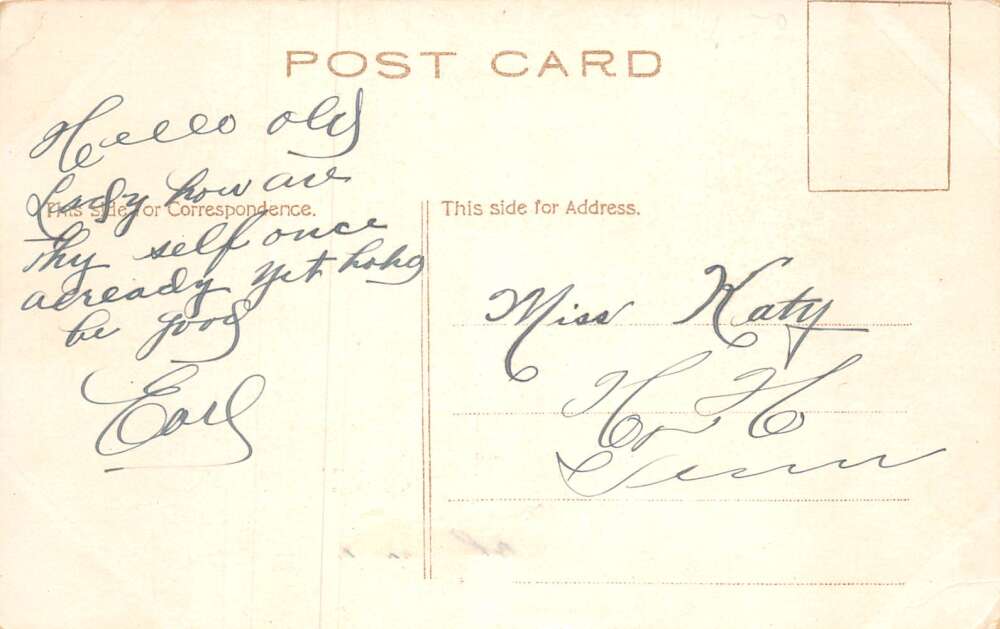 POST CARD
Hello old
Lady how are
This side for Correspondence.
thy self once
already yet
be good
Earl
This side for Address.
Miss Katy